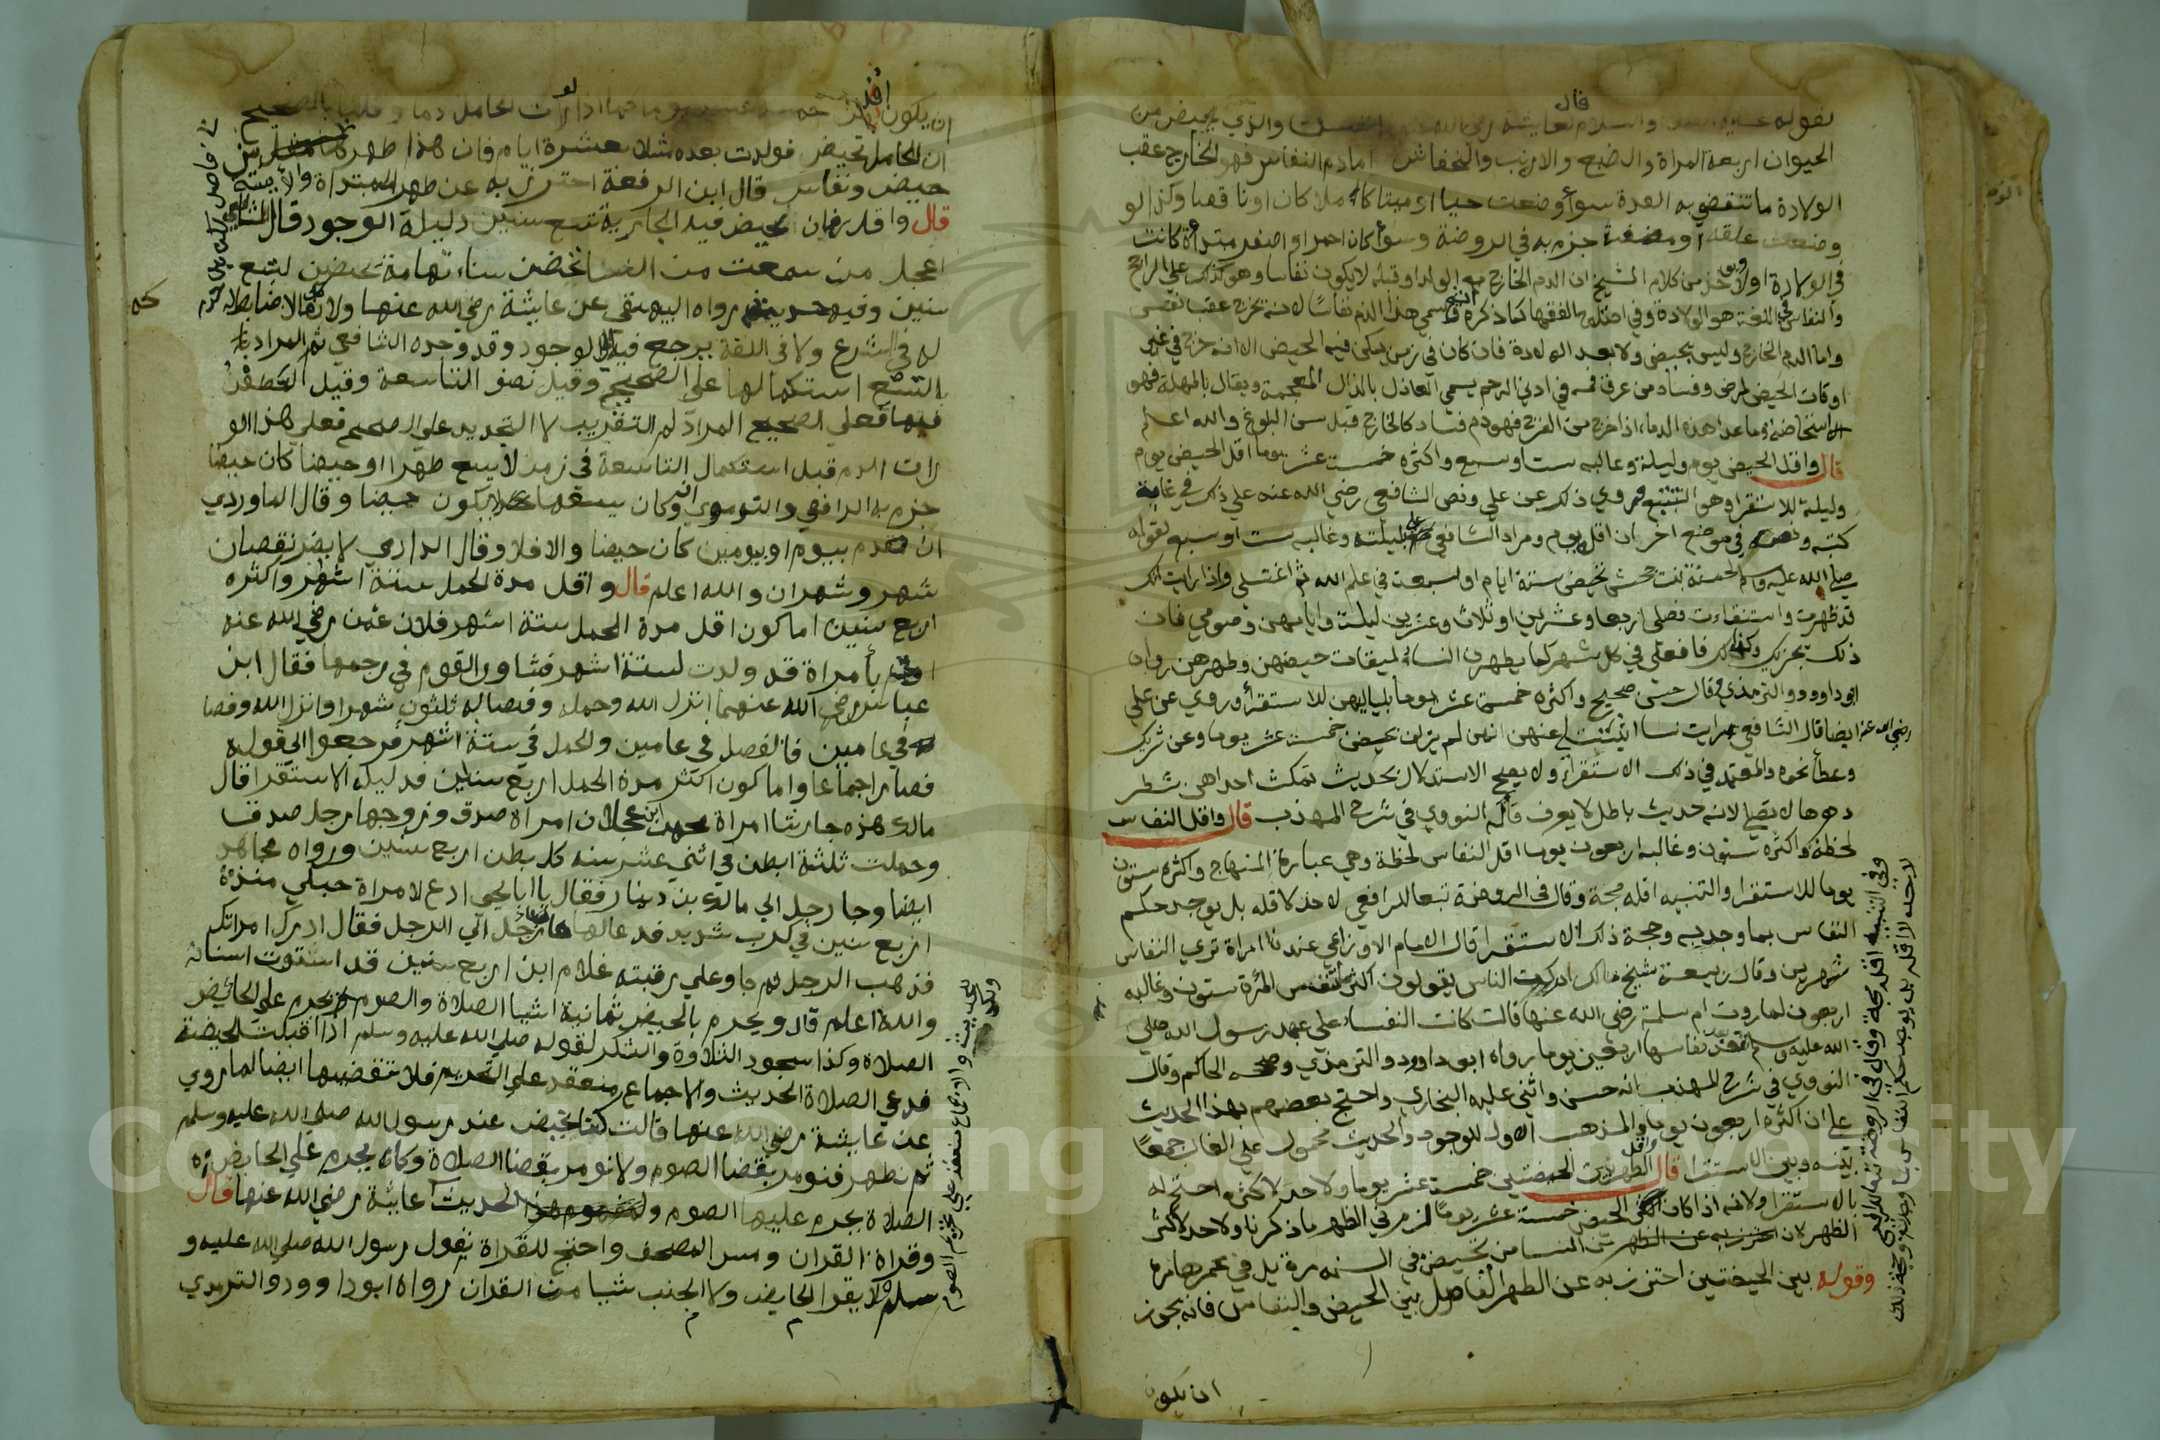 لقوله عليه الصلاة والسلام لعايشة رضي الله عنها انفست والذي يحيض من
الحيوان اربعة المراة والضبع والارنب والخفاش اما دم النفاس فهو الخارج عقب
الولادة ما تنقضي به العدة سوأ وضعت حيا او ميتا كاملا كان او ناقصا وكذا لو
وضعت علقة او مضغة جزم به في الروضة وسوأ كان احمر او اصفر مبتدأة كانت
في الولادة اولا ويوخذ من كلام الشيخ ان الدم الخارج مع الولد او قبله لا يكون نفاسا وهو كذلك علي الراجح
والنفاس في اللغة هو الولادة وفي اصطلاح الفقها كما ذكره الشيخ وسمي هذا الدم نفاسا لانه يخرج عقب نفس
واما الدم الخارج وليس بحيض ولا بعد الولادة فان كان في زمن يمكن فيه الحيض الا انه خرج في غير
اوقات الحيض لمرض وفساد من عرق فمه في ادني الرحم يسمي العاذل بالذال المعجمة ويقال بالمهملة فهو
استحاضة وما عدا هذه الدماء اذا خرج من الفرج فهو دم فساد كالخارج قبل سن البلوغ والله اعلم
قال واقل الحيض يوم وليلة وغالبه ست او سبع واكثره خمسة عشر يوما اقل الحيض يوم
وليلة للاستقرا وهو التتبع وروي ذلك عن علي ونص الشافعي رضي الله عنه علي ذلك في غالب
كتبه ونص في موضع اخر ان اقله يوم ومراد الشافعي مع ليلته وغالبه ست او سبع لقوله
صلي الله عليه وسلم لحمنة بنت جحش تحيضي ستة ايام او سبعة في علم الله ثم اغتسلي واذا رايت انك
قد طهرت واستنقات فصلي اربعا وعشرين او ثلاث وعشرين ليلة وايامهن وصومي فان
ذلك يجزيك وكذلك فافعلي في كل شهر كما يطهرن النساء لميقات حيضهن وطهرهن رواه
ابو داوود والترمذي وقال حسن صحيح واكثره خمسة عشر يوما بلياليهن للاستقرأ وروي عن علي
رضي الله عنه ايضا قال الشافعي رايت نسا اثبت لي عنهن انهن لم يزلن يحيضن خمسة عشر يوما وعن شريك
وعطأ نحوه والمعتمد في ذلك الاستقرأ ولا يصح الاستدلال بحديث تمكث احداهن شطر
دهرها لا تصلي لانه حديث باطل لا يعرف قاله النووي في شرح المهذب قال واقل النفاس
لحظة واكثره ستون وغالبه اربعون يوما اقل النفاس لحظة وهي عبارة المنهاج واكثره ستون
يوما للاستقرا والتنبيه اقله مجة وقال في الروضة تبعا للرافعي لا حد لاقله بل يوجد حكم
النفاس بما وجد به وحجة ذلك الاستقرا قال الامام الاوزاعي عندنا امراة تري النفاس
شهرين وقال ربيعة شيخ مالك ادركت الناس يقولون اكثر ما تنفس المراة ستون وغالبه
اربعون لما روت ام سلمة رضي الله عنها قالت كانت النفساء علي عهد رسول الله صلي
الله عليه وسلم تقعد نفاسها اربعين يوما رواه ابو داوود والترمذي وصححه الحاكم وقال
النووي في شرح المهذب انه حسن واثني عليه البخاري واحتج بعضهم بهذا الحديث
علي ان اكثره اربعون يوما والمذهب الاول للوجود والحديث محمول علي الغالب جمعا
بينه وبين الاستقرا قال واقل الطهر بين الحيضتين خمسة عشر يوما ولا حد لاكثره احتج له
بالاستقرا ولانه اذا كان اكثر الحيض خمسة عشر يوما لزم في الطهر ما ذكرنا ولا حد لاكثر
الطهر لان من النسا من تحيض في السنة مرة بل في عمرها مرة
وقوله بين الحيضتين احترز به عن الطهر الفاصل بين الحيض والنفاس فانه يجوز
ان يكون
وفي التنبيه اقله مجة وقال في الروضة تبعا للرافعي
لا حد لاقله بل يوجد حكم النفاس بما وجد به وحجة ذلك
ان يكون اقل من خمسة عشر يوما كما اذا رات الحامل دما وقلنا بالصحيح
ان الحامل تحيض فولدت بعده بثلاثة عشرة ايام فان هذا طهر بين
حيض ونفاس قال ابن الرفعة احترز به عن طهر المبتدأة والآيسة
قال واقل زمان تحيض فيه الجارية تسع سنين دليله الوجود قال الشافعي
اعجل من سمعت من النسا تحضن نساء تهامة تحضن لتسع
سنين وفيه حديث رواه البيهقي عن عايشة رضي الله عنها ولان كل ما لا ضابط
له في الشرع ولا في اللغة يرجع فيه الي الوجود وقد وجده الشافعي ثم المراد
بالتسع استكمالها علي الصحيح وقيل نصف التاسعة وقيل الطعن
فيها فعلي الصحيح المراد التقريب لا التحديد علي الصحيح فعلي هذا لو
رات الدم قبل استكمال التاسعة في زمن لا يسع طهرا او حيضا كان حيضا
جزم به الرافعي والنووي وان كان يسعهما لا يكون حيضا وقال الماوردي
ان تقدم بيوم او يومين كان حيضا والا فلا وقال الدارمي لا يضر نقصان
شهر وشهران والله اعلم قال واقل مدة الحمل ستة اشهر واكثره
اربع سنين اما كون اقل مدة الحمل ستة اشهر فلان عثمن رضي الله عنه
اوتي بأمراة قد ولدت لستة اشهر فشاور القوم في رجمها فقال ابن
عباس رضي الله عنهما انزل الله وحمله وفصاله ثلثون شهرا وانزل الله وفصا
له في عامين فالفصل في عامين والحمل في ستة اشهر فرجعوا الي قوله
فصار اجماعا واما كون اكثر مدة الحمل اربع سنين فدليله الاستقرا قال
مالك هذه جارتنا امراة محمد ابن عجلان امراة صدق وزوجها رجل صدق
وحملت ثلثة ابطن في اثني عشر سنه كل بطن اربع سنين ورواه مجاهد
ايضا وجا رجل الي مالك بن دينار فقال يا ابا يحيي ادع لامراة حبلي منذ
اربع سنين في كرب شديد فدعا لها فجا رجل الي الرجل فقال ادرك امراتك
فذهب الرجل ثم جا وعلي رقبته غلام ابن اربع سنين قد استوت اسنانه
والله اعلم قال ويحرم بالحيض ثمانية اشيا الصلاة والصوم يحرم علي الحائض
الصلاة وكذا سجود التلاوة والشكر لقوله صلي الله عليه وسلم اذا اقبلت الحيضة
فدعي الصلاة الحديث والاجماع منعقد علي التحريم فلا تقضيها ايضا لما روي
عن عايشة رضي الله عنها قالت كنا نحيض عند رسول الله صلي الله عليه وسلم
ثم نطهر فنومر بقضا الصوم ولا نومر بقضا الصلاة وكما يحرم علي الحايض
الصلاة يحرم عليها الصوم ولمفهوم هذا الحديث عايشة رضي الله عنها قال
وقراة القران ومس المصحف واحتج للقراة بقول رسول الله صلي الله عليه و
سلم لا يقرا الحايض ولا الجنب شيا من القران رواه ابو داوود والترمذي
والاجماع منعقد علي تحريم الصوم